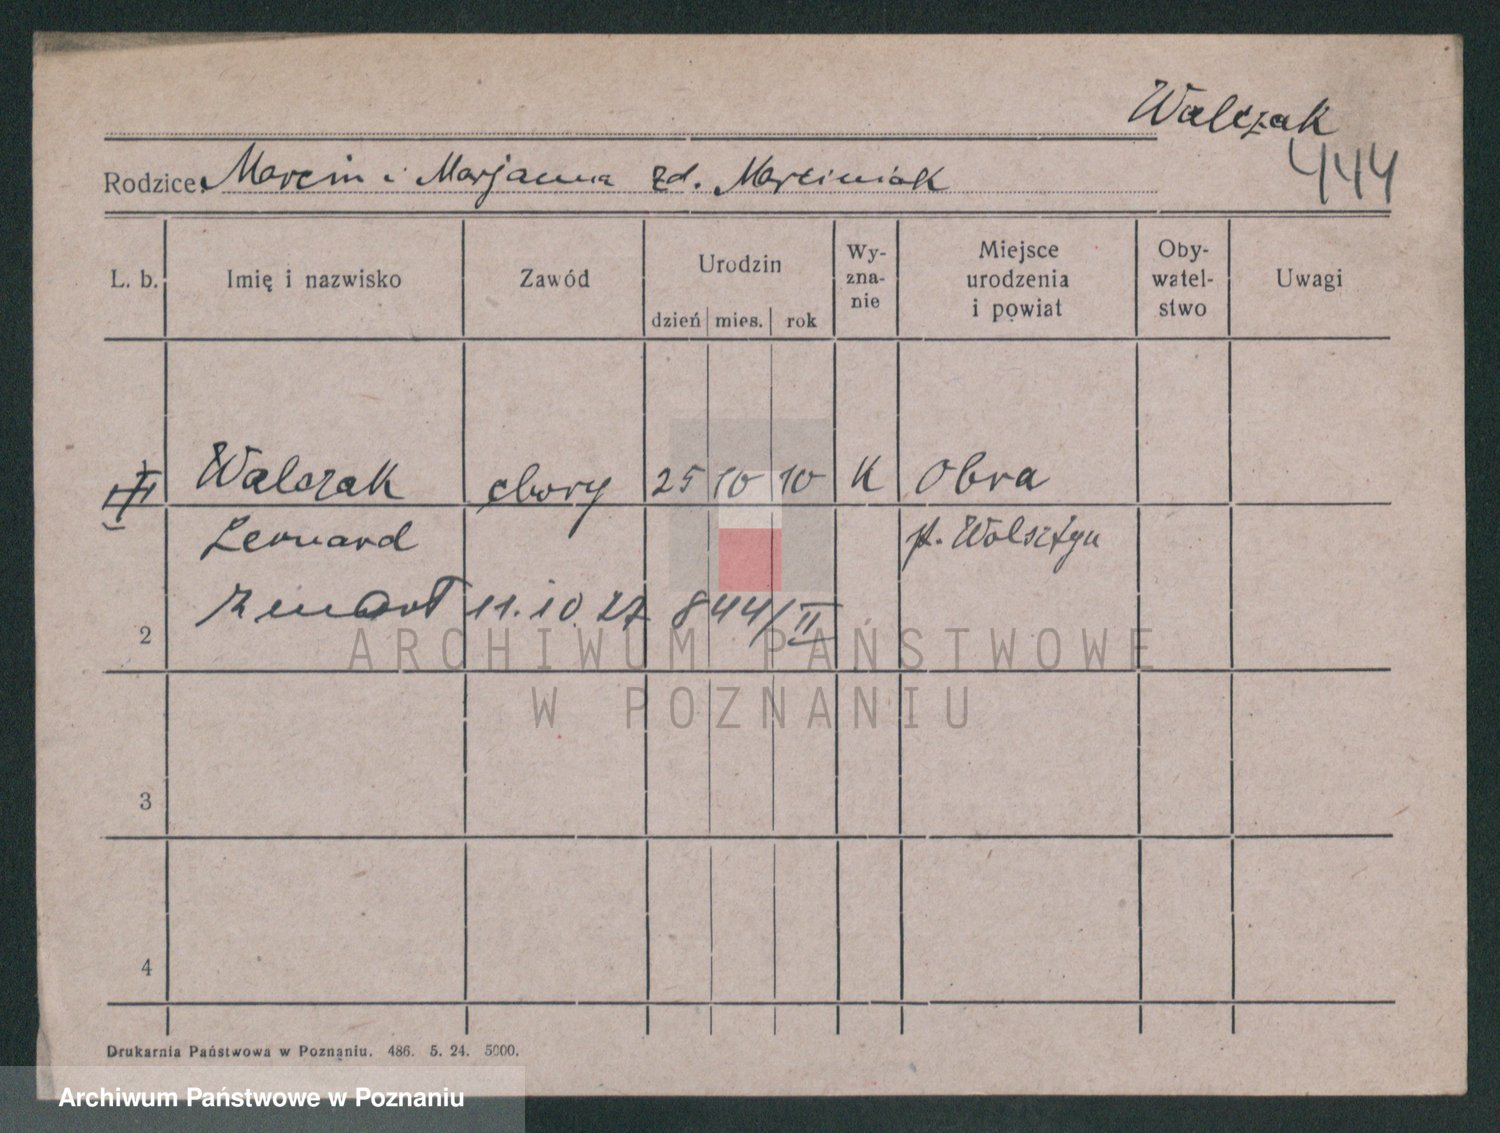 Walczak
444
Rodzice Marcin i Marjanna zd. Marciniak
L. b.
Imię i nazwisko
Zawód
Urodzin
dzień mies. rok
Wy-
zna-
nie
Miejsce
urodzenia
i powiat
Oby-
watel-
stwo
Uwagi
Walczak chory 25 10 10 K Obra
Leonard p. Wolsztyn
2 11.10.27 844/II
3
4
Drukarnia Państwowa w Poznaniu. 486. 5. 24. 5000.
ARCHIWUM PAŃSTWOWE
W POZNANIU
Archiwum Państwowe w Poznaniu